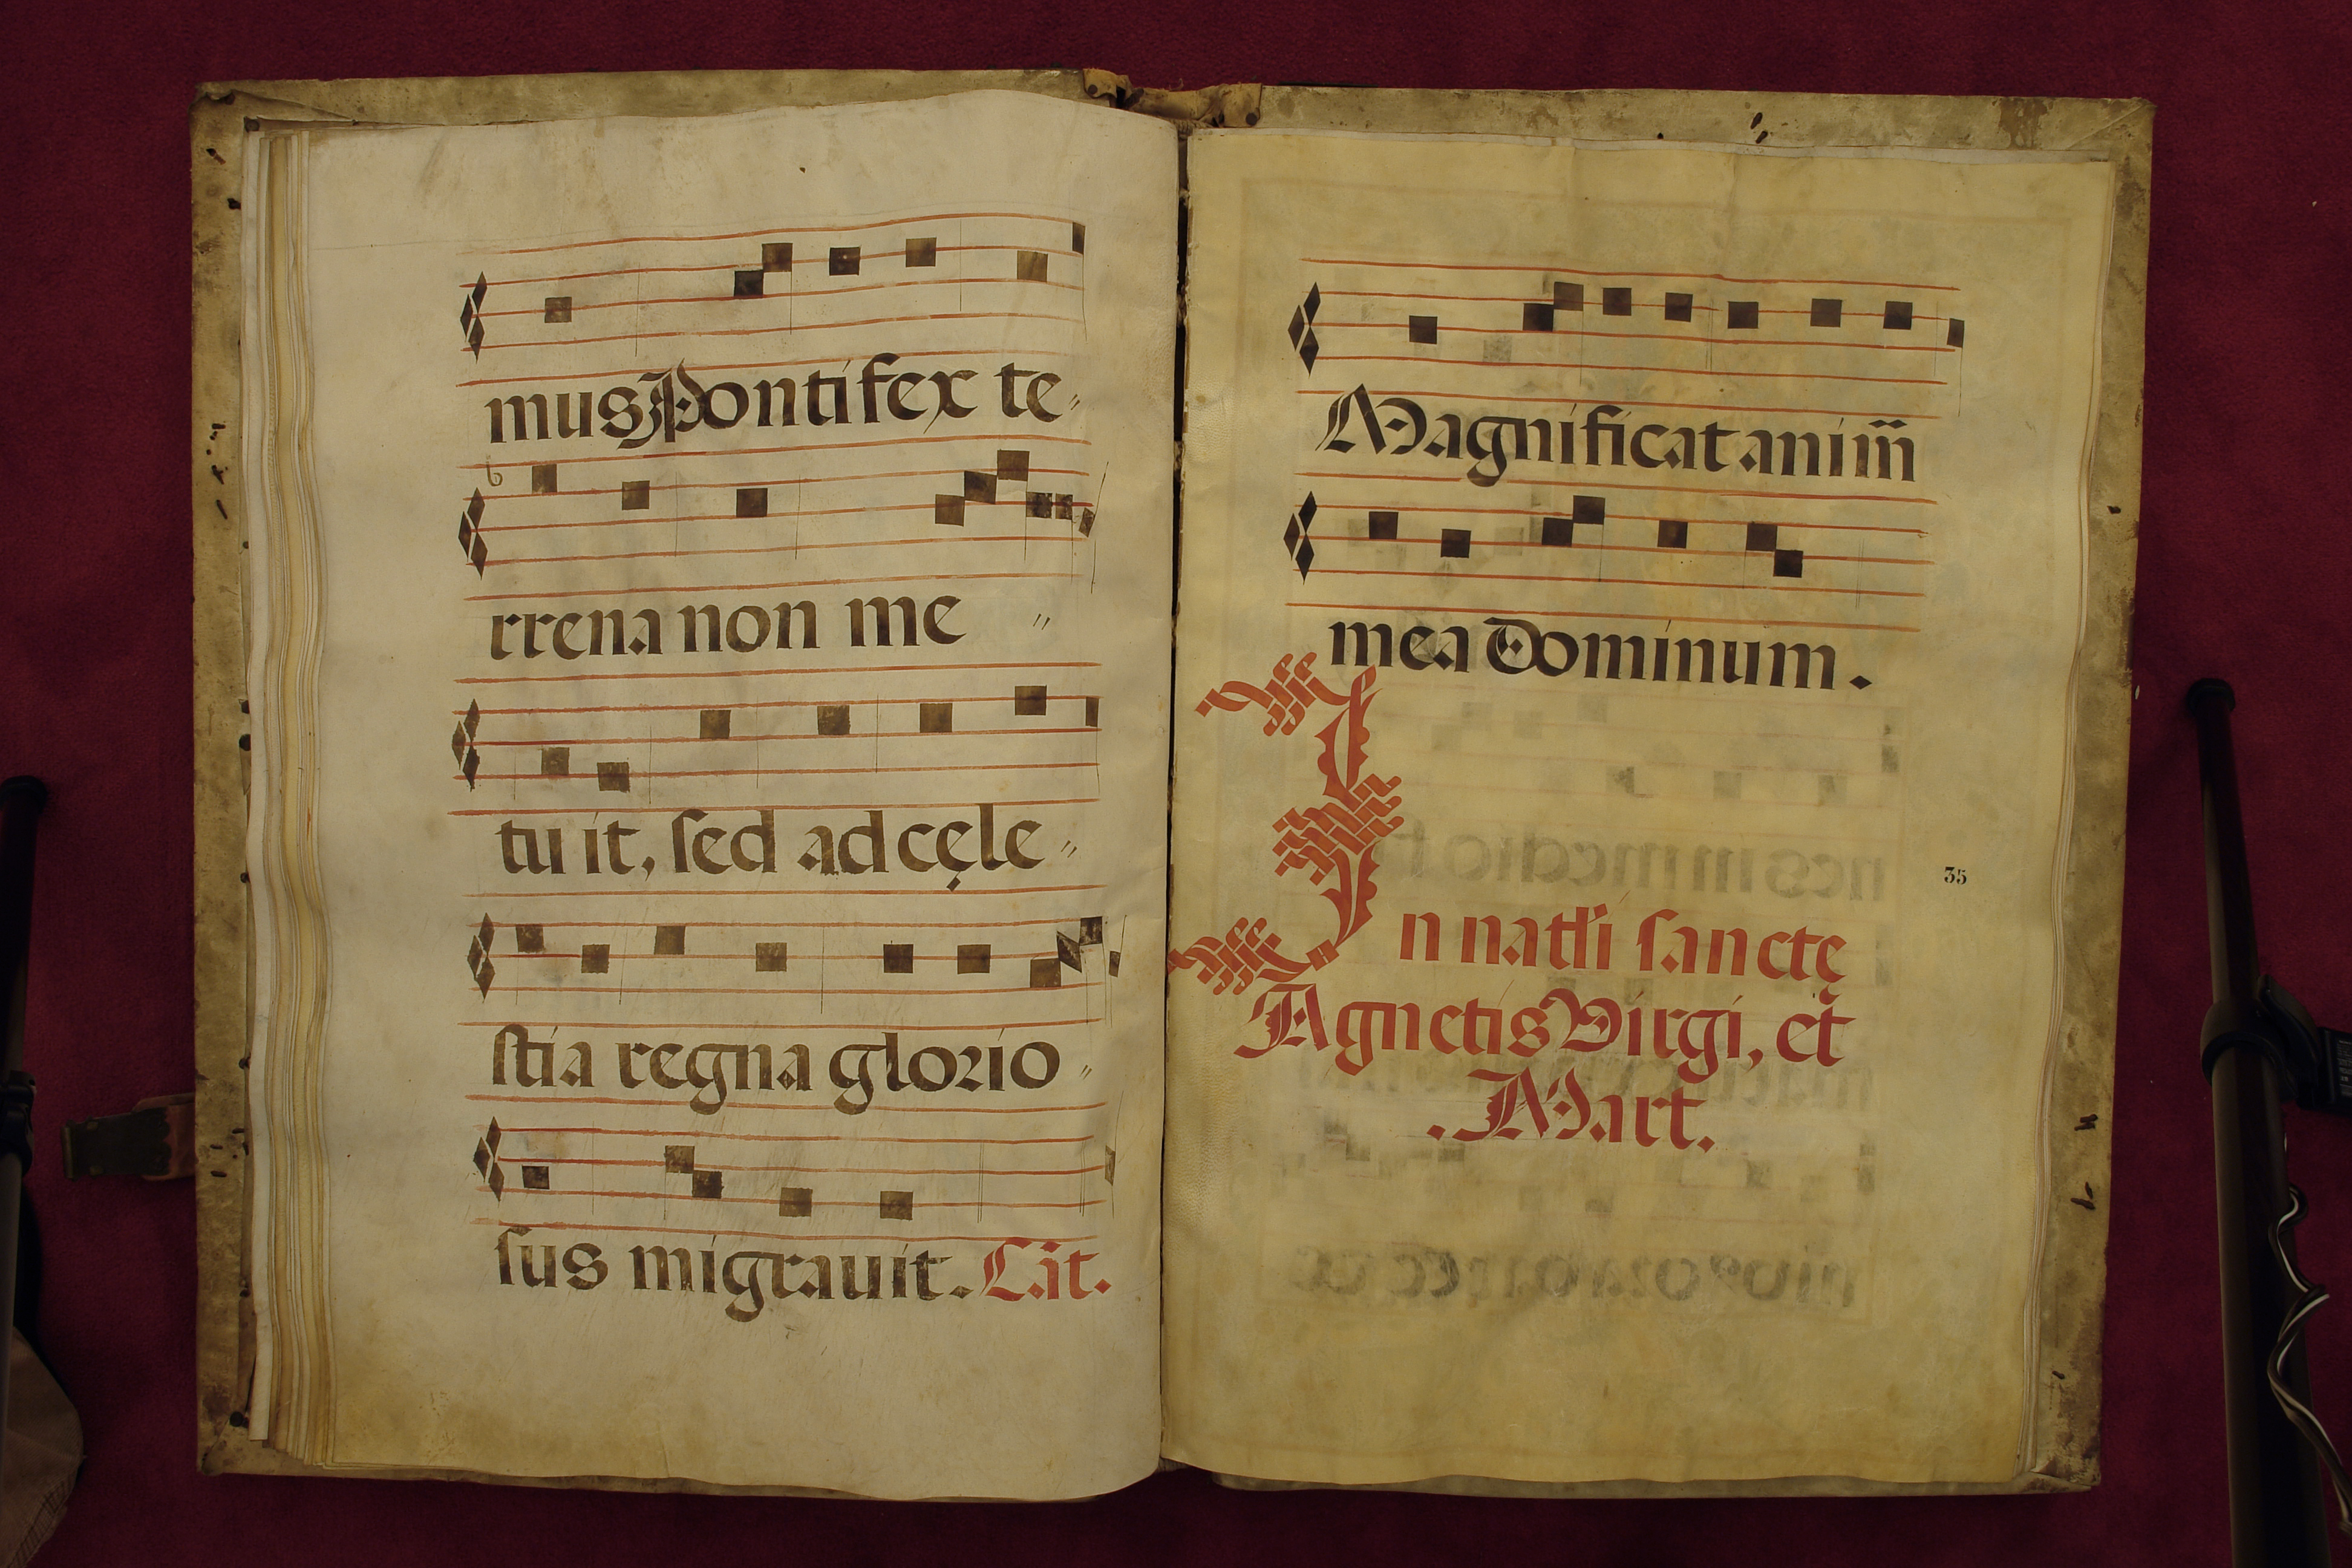 mus Pontifex te〃
rrena non me 〃
tuit, ſed ad cęle〃
ſtia regna glorio〃
ſus migrauit. Cāt.
Magnificat anim̄
mea Dominum.
35
In natłi ſanctę
Agnetis Virgi, et
. Mart.